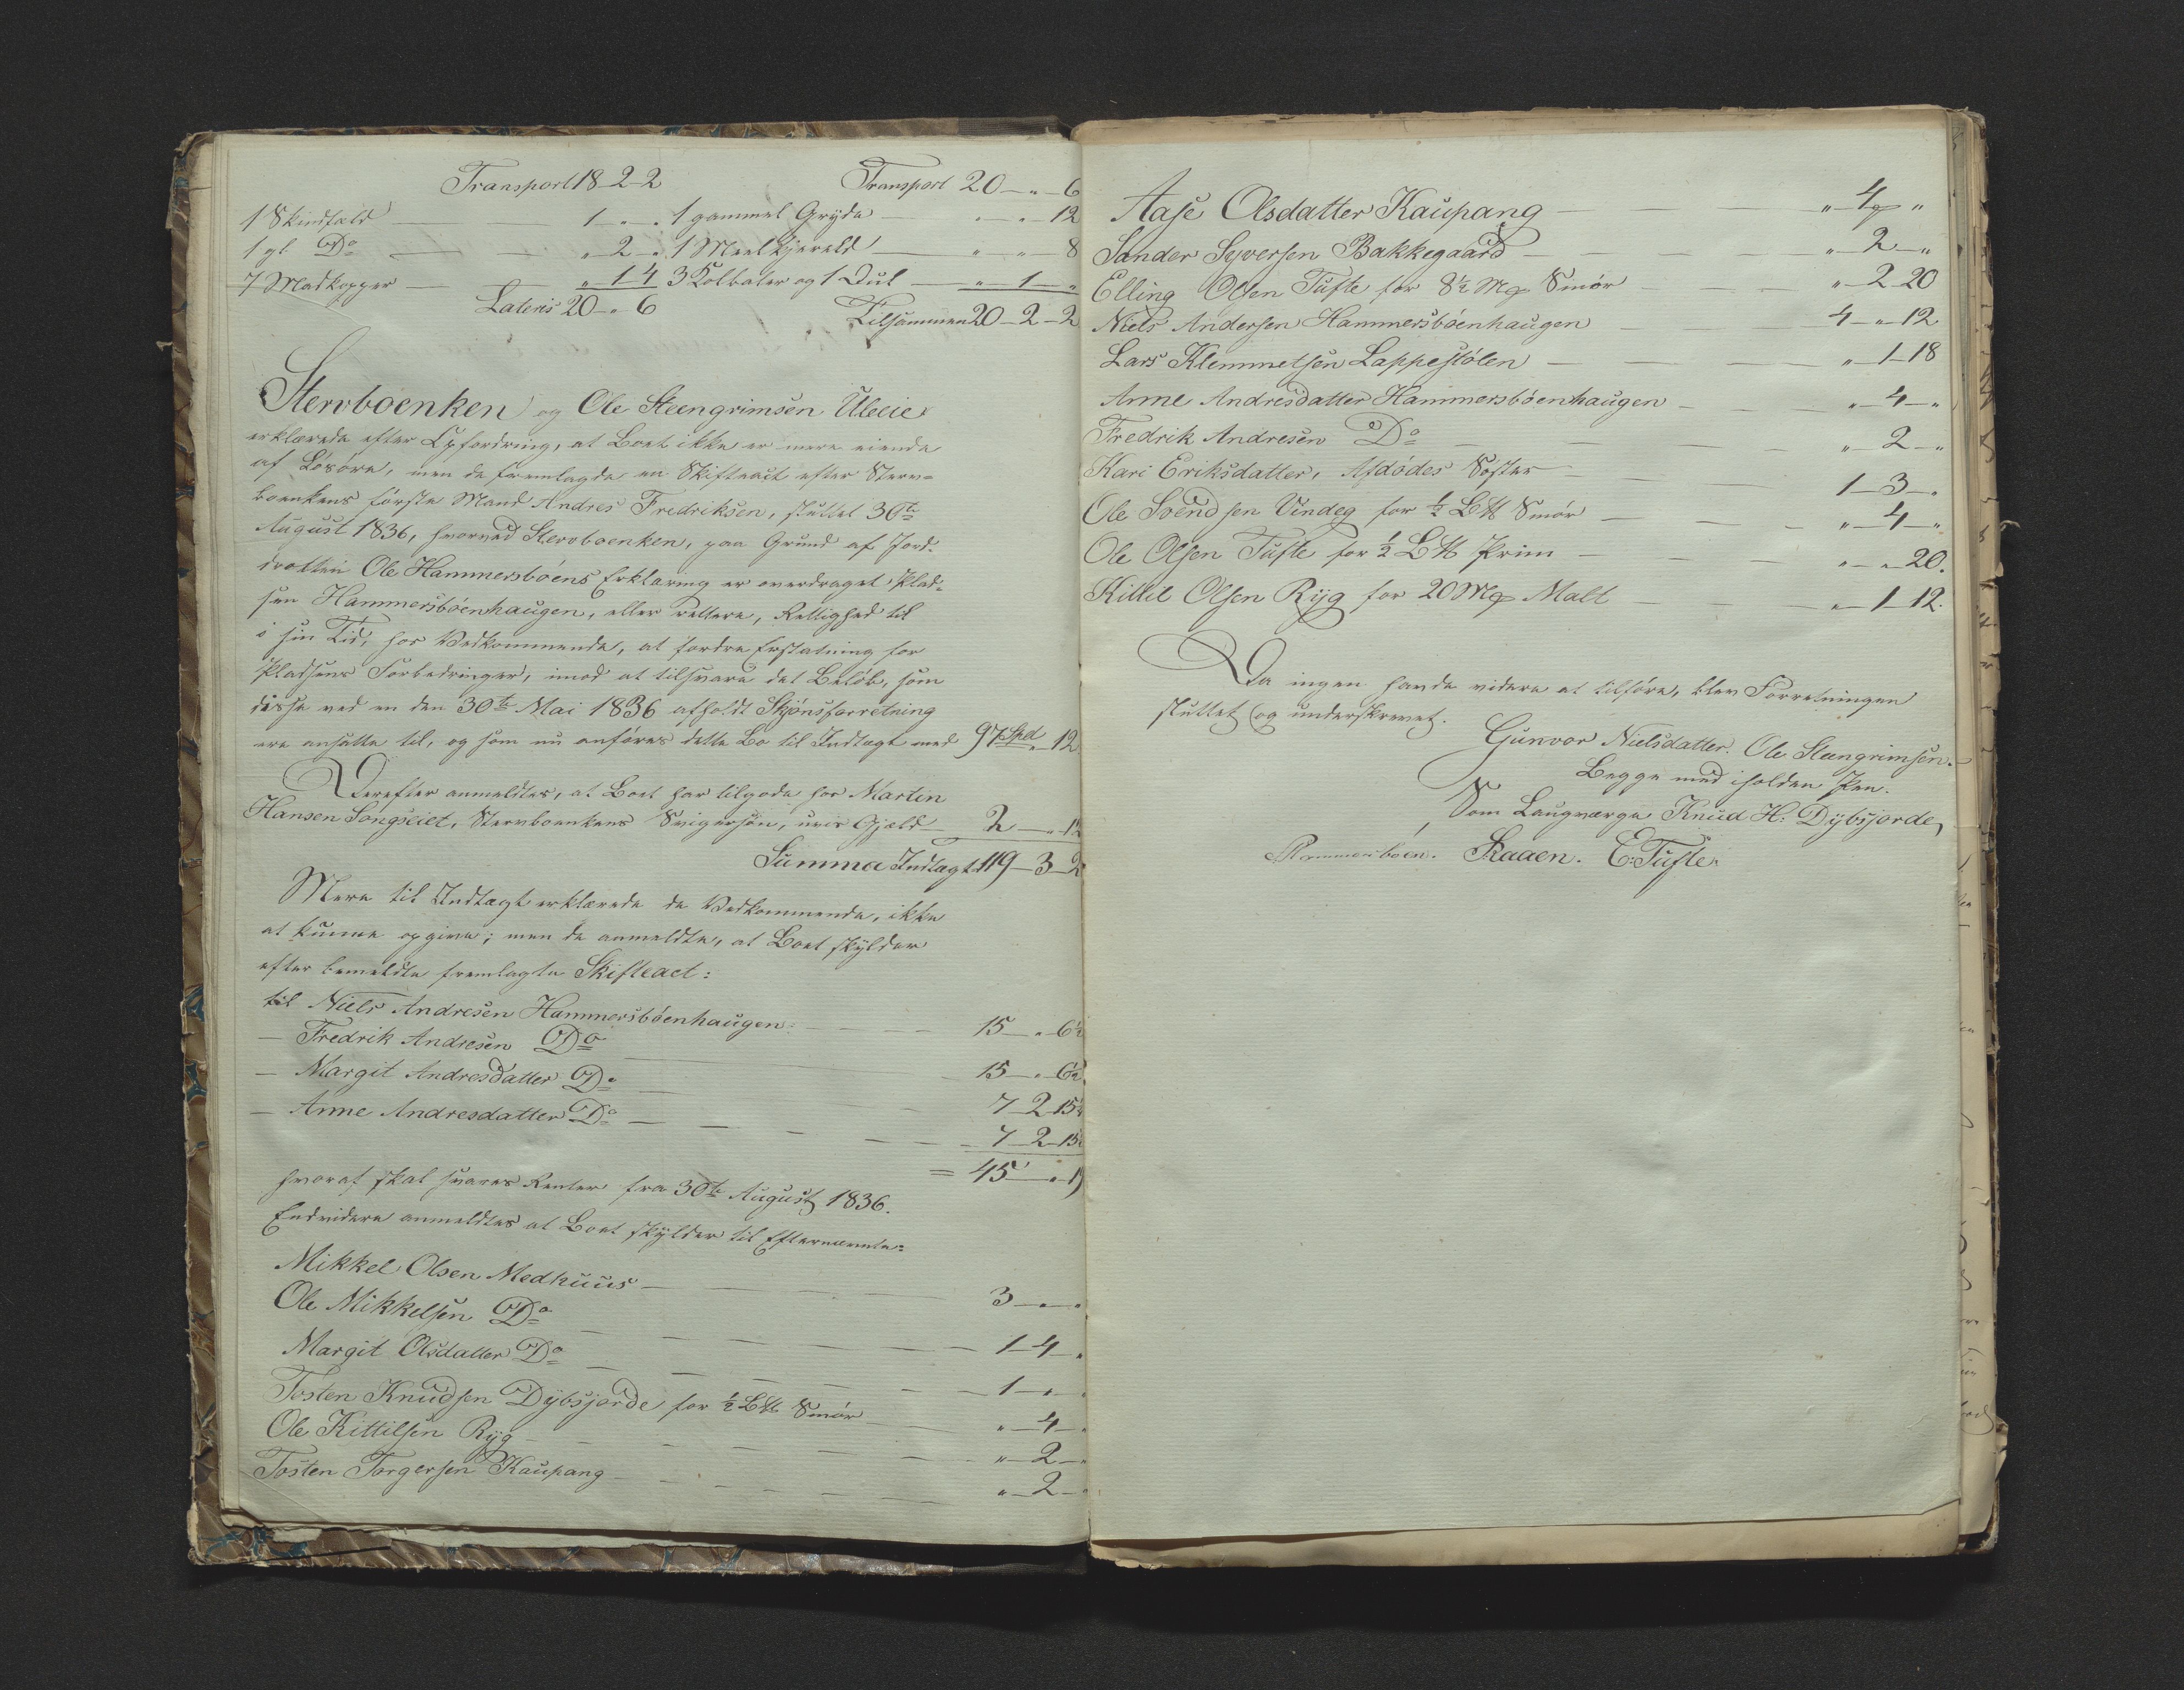 Transport 18-2-2
1 Skindfæld — 1 - „ - „
1 gl. Do — „ - 2 - „
7 Madkopper — „ 1 4
Lateris 20 - „ 6
Transport 20 - „ - 6
1 gammel Gryde — „ - „ - 12
1 Meelkjerald — „ - „ - 8
3 Kolbater og 1 — „ - 1 - „
Tilsammen 20-2-2
Stervboenken og Ole Steengrimsen Uleeie
erklærede efter Opfordring, at Boet ikke er mere eiende
af Løsøre, men de fremlagde en Skifteact efter Sterv=
boenkens første Mand Andres Fredriksen, sluttet 30te
August 1836, hvorved Stervboenken, paa Grund af Jord-
drotten Ole Hammersbøens Erklæring er overdraget Plad-
sen Hammersbøenhaugen, eller rettere, Rettighed til
i sin Tid, hos Vedkommende, at fordre Erstatning for
Pladsens Forbedringer, imod at tilsvare det Beløb, som
disse ved en den 30te Mai 1836 afholdt Skjønsforretning
ere ansatte til, og som nu anføres dette Bo til Indtægt med 97 Spd „ 12
Derefter anmeldtes, at Boet har tilgode hos Martin
Hansen Songseiet, Stervboenkens Svigersøn, uvis Gjæld — 2 - „ - 12
Summa Indtægt 119-3-2
Mere til Indtægt erklærede de Vedkommende, ikke
at kunne opgive; men de anmeldte, at Boet skylder
efter bemeldte fremlagte Skifteact:
til Niels Andresen Hammersbøenhaugen — 15 - „ - 6½
— Fredrik Andresen Do — 15 - „ - 6½
— Margit Andresdatter Do — 7-2-15½
— Anne Andresdatter Do — 7-2-15½
= 45 - „ -
hvoraf skal svares Renter fra 30te August 1836.
Endvidere anmeldtes at Boet skylder til Efternævnte:
Mikkel Olsen Medhuus — 3 - „ - „
Ole Mikkelsen Do — 1-4 - „
Margit Olsdatter Do — 1 - „ - „
Tosten Knudsen Dybsjorde for ½ L℔ Smør — „ - 4 - „
Ole Kittilsen Ryg — „ - 2 - „
Tosten Torgersen Kaupang — „ - 2 - „
Aase Olsdatter Kaupang — „ - 4 - „
Sander Syversen Bakkegaard — „ - 2 - „
Elling Olsen Tufte for 8½ Mg Smør — „ - 2 - 20
Niels Andersen Hammersbøenhaugen — 4 - „ - 12
Lars Klemmetsen Lappestølen — „ - 1 - 18
Anne Andresdatter Hammersbøenhaugen — „ - 4 - „
Fredrik Andresen Do — „ - 2 - „
Kari Eriksdatter, Afdødes Søster — 1-3 - „
Ole Svendsen Vindeg for ½ L℔ Smør — „ - 4 - „
Ole Olsen Tufte for ½ L℔ Prim — „ - „ - 20.
Kittil Olsen Ryg for 20 Mg Malt — „ - 1 - 12.
Da ingen havde videre at tilføre, blev Forretningen
sluttet og underskrevet.
Gunvor Nielsdatter. Ole Steengrimsen.
Begge med iholden Pen.
Som Laugværge Knud H. Dybsjorde,
Hammersbøen. Raaen. E. Tufte.